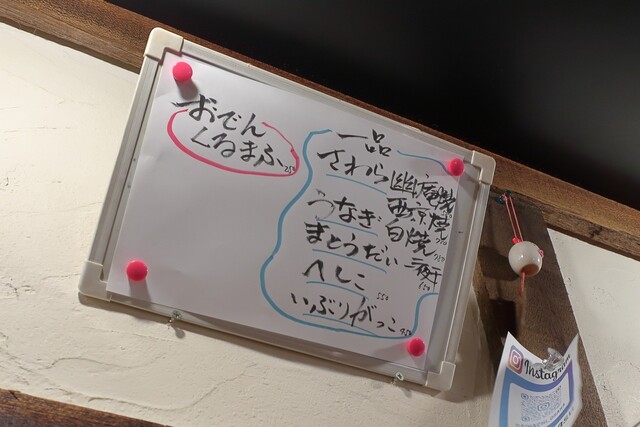 おでん
くるまふ
一品
さわら幽庵焼
西京焼
うなぎ白焼
まとうだい一夜干
へしこ 550
いぶりがっこ
Instagram